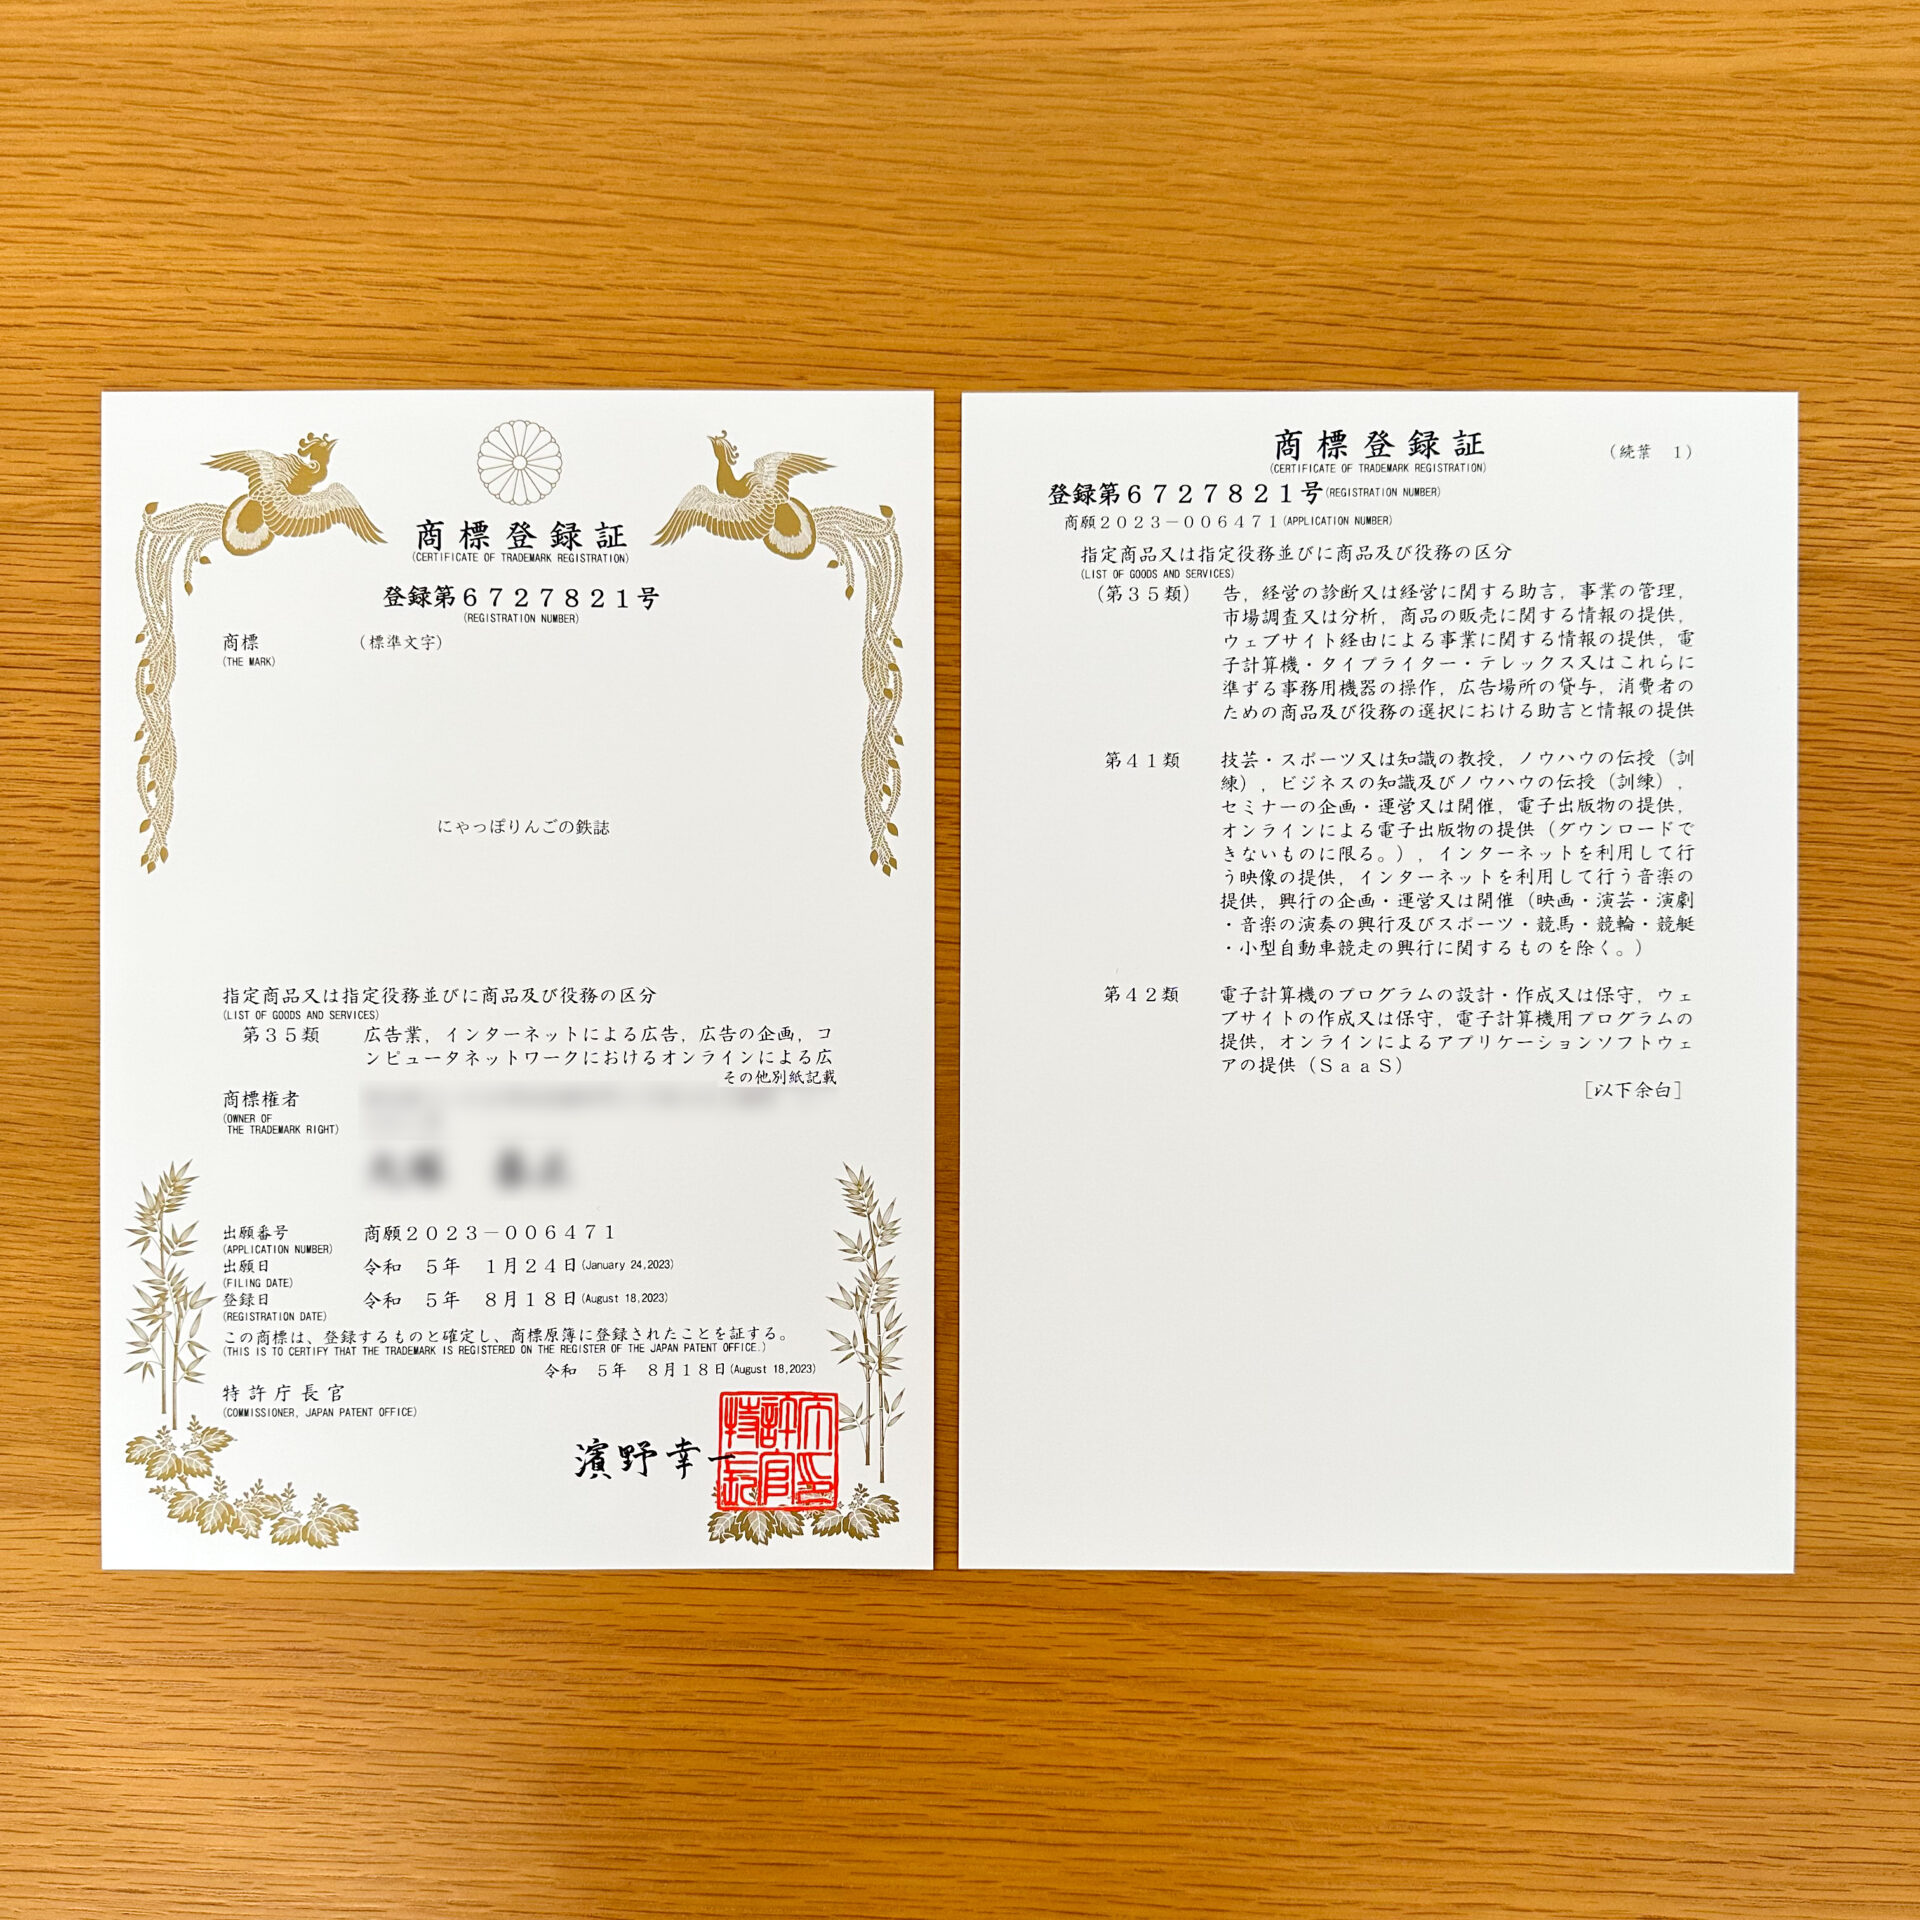 商標登録証
(CERTIFICATE OF TRADEMARK REGISTRATION)
登録第6727821号
(REGISTRATION NUMBER)
商標 (標準文字)
(THE MARK)
にゃっぽりんごの鉄誌
指定商品又は指定役務並びに商品及び役務の区分
(LIST OF GOODS AND SERVICES)
第35類 広告業，インターネットによる広告，広告の企画，コ
ンピュータネットワークにおけるオンラインによる広
その他別紙記載
商標権者
(OWNER OF
THE TRADEMARK RIGHT)
出願番号 商願2023－006471
(APPLICATION NUMBER)
出願日 令和 5年 1月24日(January 24,2023)
(FILING DATE)
登録日 令和 5年 8月18日(August 18,2023)
(REGISTRATION DATE)
この商標は、登録するものと確定し、商標原簿に登録されたことを証する。
(THIS IS TO CERTIFY THAT THE TRADEMARK IS REGISTERED ON THE REGISTER OF THE JAPAN PATENT OFFICE.)
令和 5年 8月18日(August 18,2023)
特許庁長官
(COMMISSIONER, JAPAN PATENT OFFICE)
濱野幸一
特許庁長官印
商標登録証 (続葉 1)
(CERTIFICATE OF TRADEMARK REGISTRATION)
登録第6727821号(REGISTRATION NUMBER)
商願2023－006471(APPLICATION NUMBER)
指定商品又は指定役務並びに商品及び役務の区分
(LIST OF GOODS AND SERVICES)
(第35類) 告，経営の診断又は経営に関する助言，事業の管理，
市場調査又は分析，商品の販売に関する情報の提供，
ウェブサイト経由による事業に関する情報の提供，電
子計算機・タイプライター・テレックス又はこれらに
準ずる事務用機器の操作，広告場所の貸与，消費者の
ための商品及び役務の選択における助言と情報の提供
第41類 技芸・スポーツ又は知識の教授，ノウハウの伝授（訓
練），ビジネスの知識及びノウハウの伝授（訓練），
セミナーの企画・運営又は開催，電子出版物の提供，
オンラインによる電子出版物の提供（ダウンロードで
きないものに限る。），インターネットを利用して行
う映像の提供，インターネットを利用して行う音楽の
提供，興行の企画・運営又は開催（映画・演芸・演劇
・音楽の演奏の興行及びスポーツ・競馬・競輪・競艇
・小型自動車競走の興行に関するものを除く。）
第42類 電子計算機のプログラムの設計・作成又は保守，ウェ
ブサイトの作成又は保守，電子計算機用プログラムの
提供，オンラインによるアプリケーションソフトウェ
アの提供（ＳａａＳ）
[以下余白]